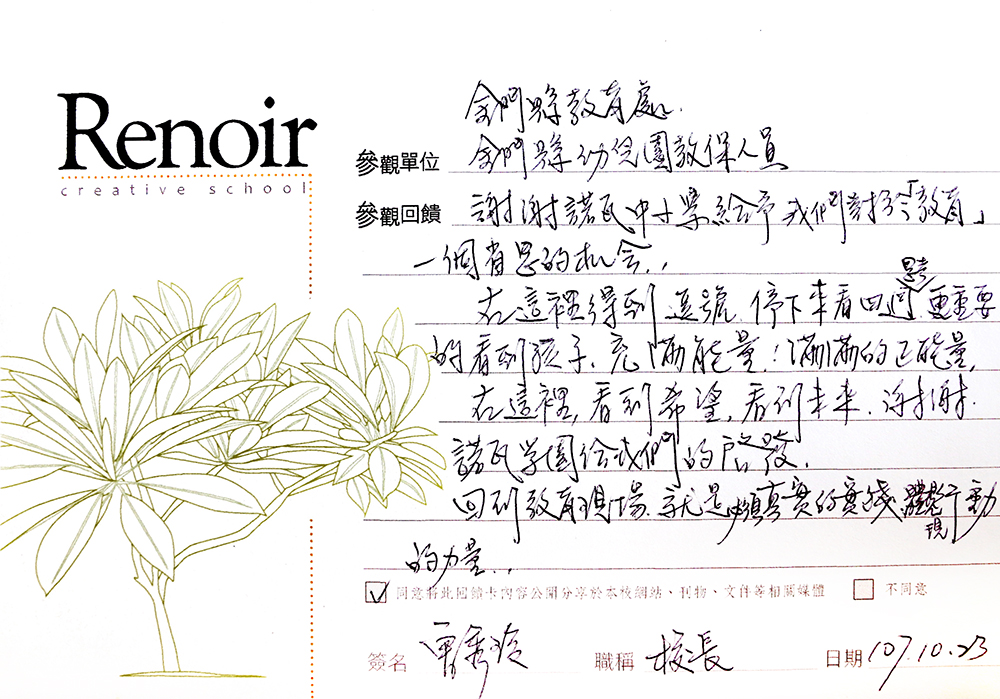 Renoir
creative school
金門縣教育處.
參觀單位 金門縣幼兒園教保人員
參觀回饋 謝謝諾瓦中小學給予我們對於「教育」
一個省思的机会..
在這裡得到 逗號 停下來看回週 思考 更重要
的看到孩子、充滿能量!滿滿的正能量,
在這裡,看到希望,看到未來.謝謝
諾瓦学園给我們的啟發.
回到教育現場.就是 真實的實踐 行動
現
的力量..
同意將此回饋卡內容公開分享於本校網站、刊物、文件等相關媒體 不同意
簽名 曾秀玲 職稱 校長 日期 107.10.23